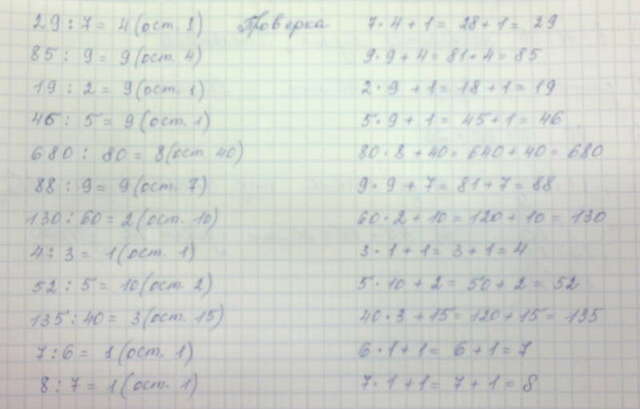 29 : 7 = 4 (ост. 1) Проверка 7 · 4 + 1 = 28 + 1 = 29
85 : 9 = 9 (ост. 4) 9 · 9 + 4 = 81 + 4 = 85
19 : 2 = 9 (ост. 1) 2 · 9 + 1 = 18 + 1 = 19
46 : 5 = 9 (ост. 1) 5 · 9 + 1 = 45 + 1 = 46
680 : 80 = 8 (ост. 40) 80 · 8 + 40 = 640 + 40 = 680
88 : 9 = 9 (ост. 7) 9 · 9 + 7 = 81 + 7 = 88
130 : 60 = 2 (ост. 10) 60 · 2 + 10 = 120 + 10 = 130
4 : 3 = 1 (ост. 1) 3 · 1 + 1 = 3 + 1 = 4
52 : 5 = 10 (ост. 2) 5 · 10 + 2 = 50 + 2 = 52
135 : 40 = 3 (ост. 15) 40 · 3 + 15 = 120 + 15 = 135
7 : 6 = 1 (ост. 1) 6 · 1 + 1 = 6 + 1 = 7
8 : 7 = 1 (ост. 1) 7 · 1 + 1 = 7 + 1 = 8